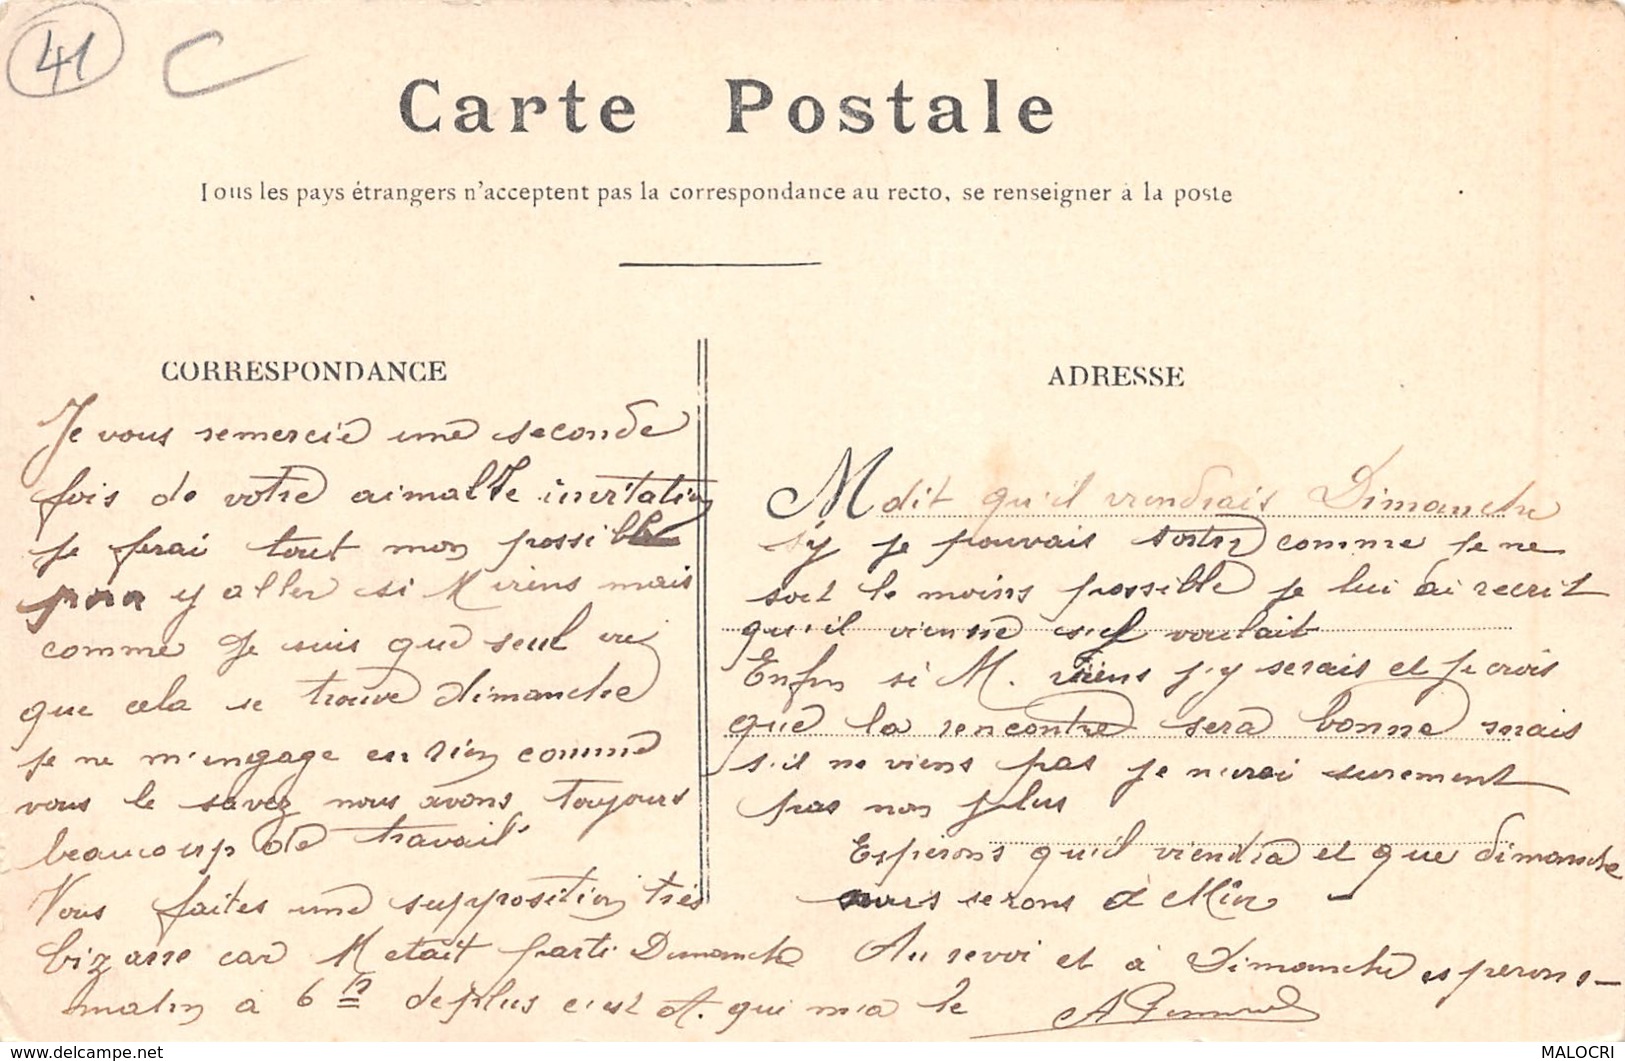 41 C
Carte Postale
Tous les pays étrangers n'acceptent pas la correspondance au recto, se renseigner à la poste
CORRESPONDANCE
Je vous remercie une seconde
fois de votre aimable invitation
je ferai tout mon possible
pour y aller si M viens mais
comme je suis que seul ici
que cela se trouve dimanche
je ne m'engage en rien comme
vous le savez nous avons toujours
beaucoup de travail
Vous faites une supposition très
bizarre car M etait parti Dimanche
matin à 6 h de plus c'est M. qui m'a le
ADRESSE
M dit qu'il viendrais Dimanche
s'y je pouvais sortir comme je ne
sort le moins possible je lui ai recrit
qu'il vienne s'il voulait
Enfin si M. viens j'y serais et je crois
que la rencontre sera bonne mais
s'il ne viens pas je n'irai surement
pas non plus
Esperons qu'il viendra et que dimanche
nous serons à
Au revoi et à Dimanche esperons-
le
MALOCRI
www.delcampe.net